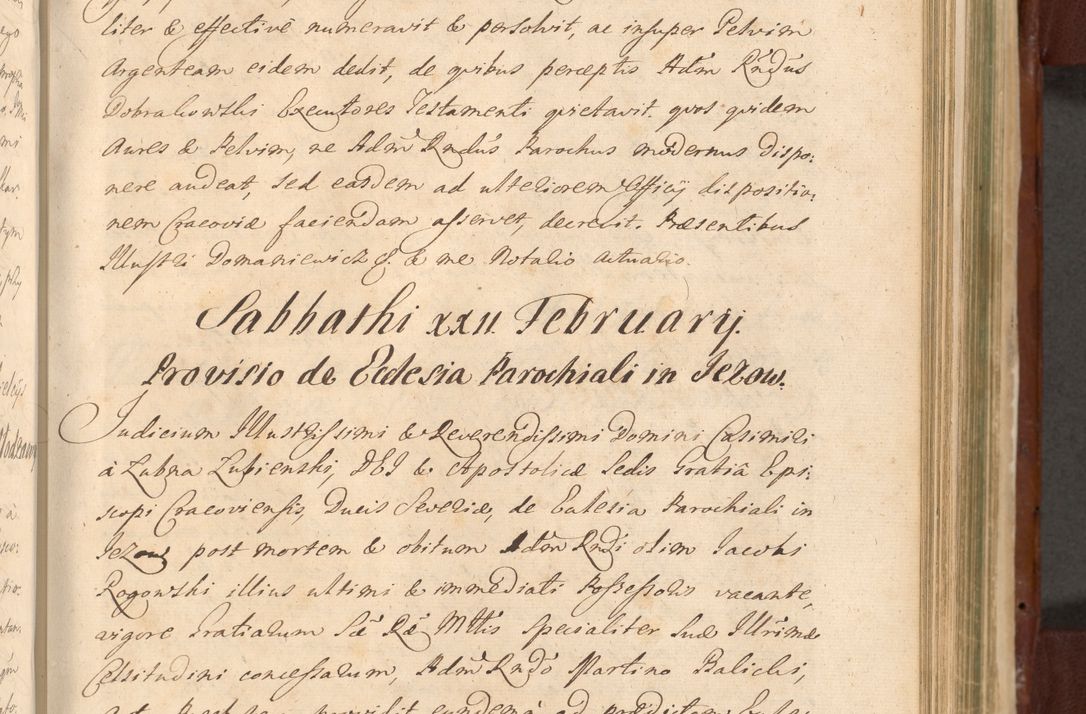 liter & effectivè numeravit & persolvit, ac insuper Pelvim
Argenteam eidem dedit, de quibus perceptis Adm̃ R̃ndus
Dobrakowski Executores Testamenti quietavit. quos quidem
Aures & Pelvim, ne Adm̃ Rndus Parochus modernus dispo:
nere audeat, sed easdem ad ulteriorem Officij dispositio:
nem Cracoviæ faciendam asservet, decrevit. Præsentibus
Illustri Domaniewicz & me Notario actuario.
Sabbathi XXII. February.
Provisio de Ecclesia Parochiali in Jezow.
Judicium Illustrissimi & Reverendissimi Domini Casimiri
à Łubna Łubienski, DEI & Apostolicæ Sedis Gratiâ Epi:
scopi Cracoviensis, Ducis Severiæ, de Ecclesia Parochiali in
Jezow post mortem & obitum Adm̃ Rndi olim Jacobi
Rogowski illius ultimi & immediati Possessoris vacante,
vigore Gratiarum Sæ Ræ Mttis specialiter suæ Illr̃imæ
Celsitudini concessarum, Adm̃ Rndo Martino Balicki,
providit eundemq ad prædictam Eccle: